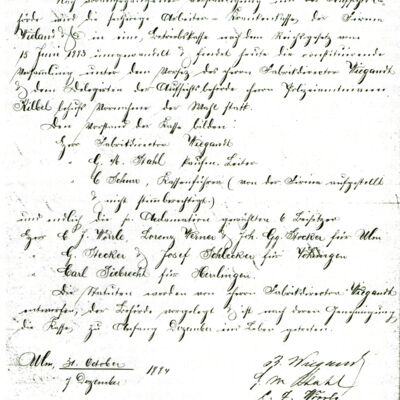 förde wird die seitherige Arbeiter-Krankenkasse, der Firma
Wieland & C in eine Betriebskasse nach dem Reichsgesetz vom
15 Juni 1883 umgewandelt & findet heute die constituirende
Versammlung unter dem Vorsitz des Herrn Fabrikdirector Wiegandt
& dem Delegirten der Aufsichtsbehörde Herrn Polizeiamtmann
Kilbel behufs Vornahme der Wahl statt.
Den Vorstand der Kasse bilden:
Herr Fabrikdirector Wiegandt
" G. M. Stahl kaufm. Leiter
" C Kassenführer (von der Firma aufgestellt
& nicht stimberechtigt)
und endlich die pr. gewählten 6 Beisitzer
Herr C. J. Wörle, Lorenz Werner & Joh. Gg. Stocker für Ulm
" G. Stecker & Josef Schlecker für Vöhringen
" Carl Siebrecht für
Die Statuten werden von Herrn Fabrikdirector Wiegandt
entworfen, der Behörde vorgelegt & ist nach deren Genehmigung
die Kasse, zu Anfang Dezember ins Leben getreten.
Ulm, 31. October 1884
7 Dezember
Wiegandt
G. M. Stahl
C. J. Wörle